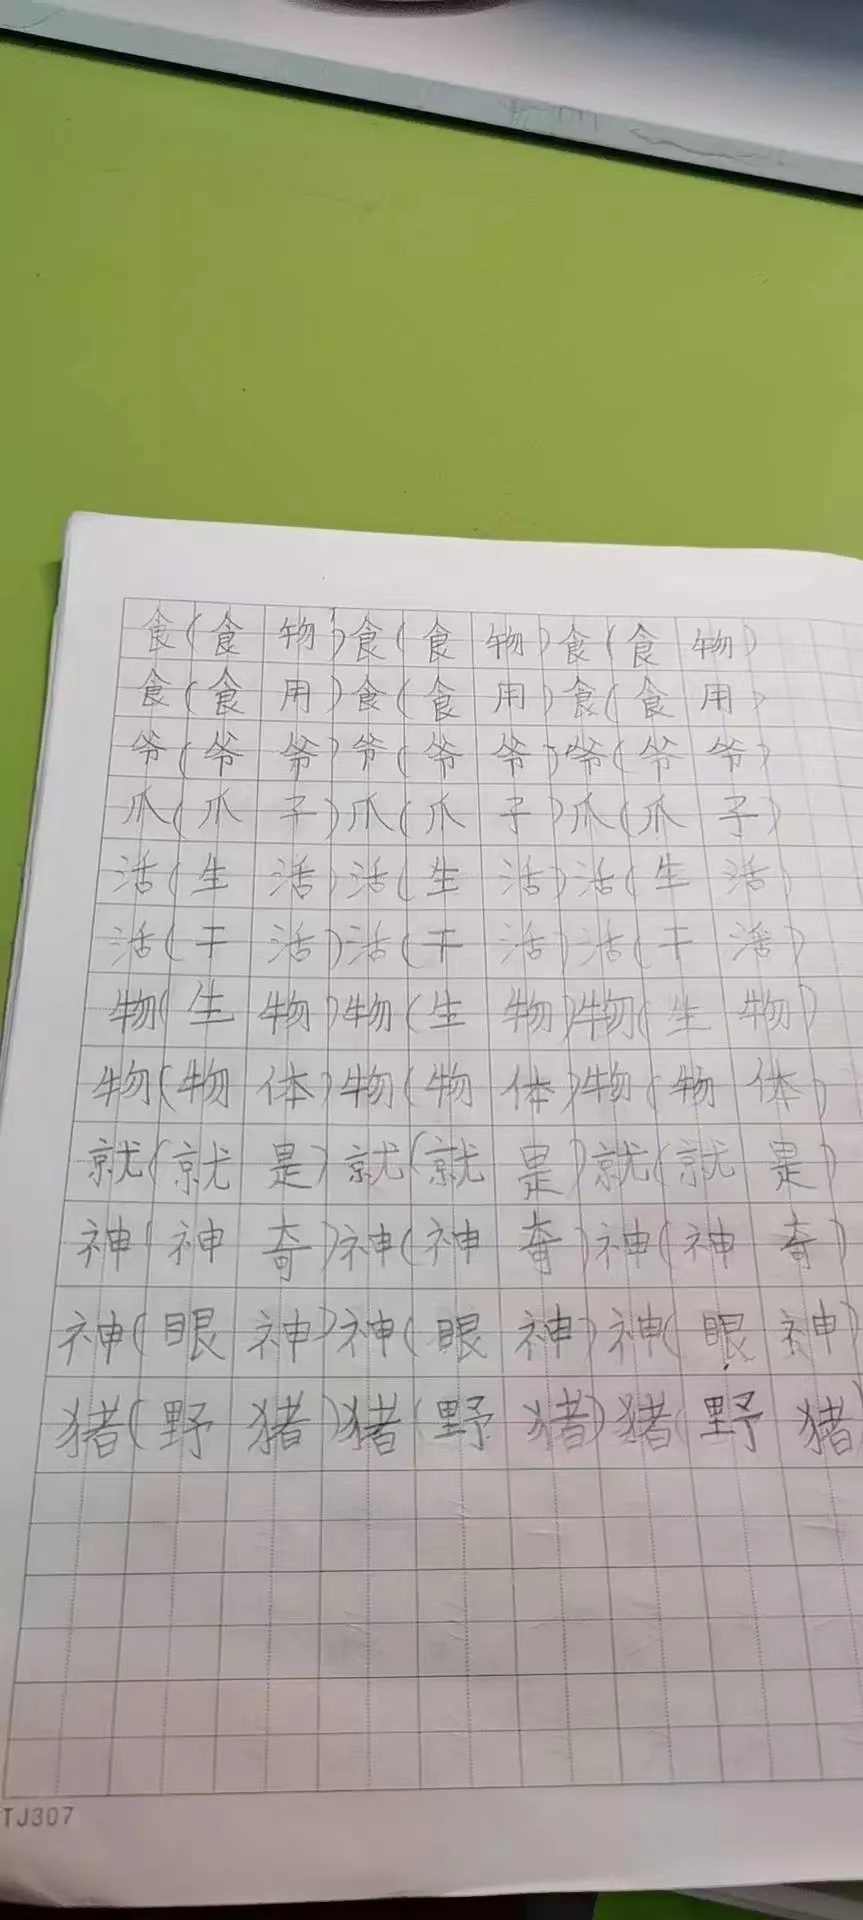 食(食物)食(食物)食(食物)
食(食用)食(食用)食(食用)
爷(爷爷)爷(爷爷)爷(爷爷)
爪(爪子)爪(爪子)爪(爪子)
活(生活)活(生活)活(生活)
活(干活)活(干活)活(干活)
物(生物)物(生物)物(生物)
物(物体)物(物体)物(物体)
就(就是)就(就是)就(就是)
神(神奇)神(神奇)神(神奇)
神(眼神)神(眼神)神(眼神)
猪(野猪)猪(野猪)猪(野猪)
TJ307